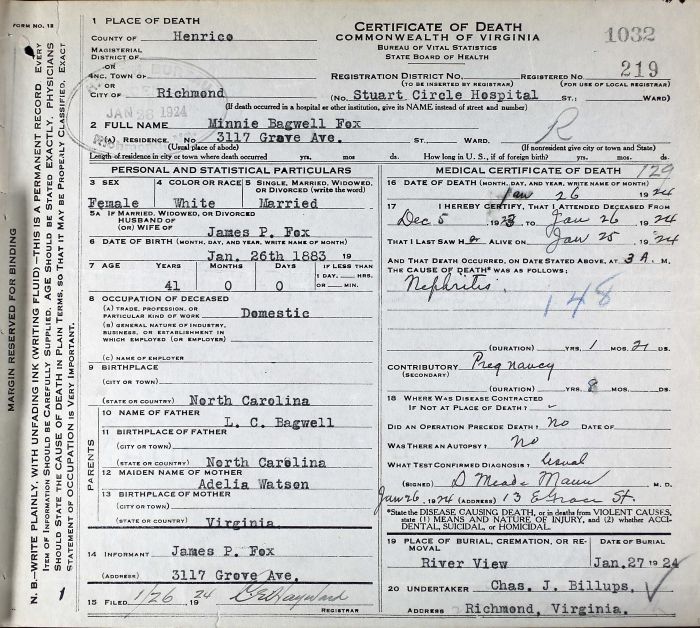 FORM NO. 12
1 PLACE OF DEATH
COUNTY OF Henrico
MAGISTERIAL
DISTRICT OF
OR
INC. TOWN OF
OR
CITY OF Richmond
JAN 26 1924
CERTIFICATE OF DEATH
COMMONWEALTH OF VIRGINIA
BUREAU OF VITAL STATISTICS
STATE BOARD OF HEALTH
1032
REGISTRATION DISTRICT NO. REGISTERED NO. 219
(TO BE INSERTED BY REGISTRAR) (FOR USE OF LOCAL REGISTRAR)
(No. Stuart Circle Hospital ST.; WARD)
(If death occurred in a hospital or other institution, give its NAME instead of street and number)
2 FULL NAME Minnie Bagwell Fox R
(A) RESIDENCE. No. 3117 Grove Ave. ST., WARD.
(Usual place of abode) (If nonresident give city or town and State)
Length of residence in city or town where death occurred yrs. mos. ds. How long in U. S., if of foreign birth? yrs. mos. ds.
PERSONAL AND STATISTICAL PARTICULARS
3 SEX 4 COLOR OR RACE 5 SINGLE, MARRIED, WIDOWED, OR DIVORCED (write the word)
Female White Married
5A IF MARRIED, WIDOWED, OR DIVORCED
HUSBAND OF
(OR) WIFE OF James P. Fox
6 DATE OF BIRTH (MONTH, DAY, AND YEAR, WRITE NAME OF MONTH)
Jan. 26th 1883 19
7 AGE YEARS MONTHS DAYS IF LESS THAN 1 DAY, HRS. OR MIN.
41 0 0
8 OCCUPATION OF DECEASED
(A) TRADE, PROFESSION, OR
PARTICULAR KIND OF WORK Domestic
(B) GENERAL NATURE OF INDUSTRY,
BUSINESS, OR ESTABLISHMENT IN
WHICH EMPLOYED (OR EMPLOYER)
(C) NAME OF EMPLOYER
9 BIRTHPLACE
(CITY OR TOWN)
(STATE OR COUNTRY) North Carolina
PARENTS
10 NAME OF FATHER
L. C. Bagwell
11 BIRTHPLACE OF FATHER
(CITY OR TOWN)
(STATE OR COUNTRY) North Carolina
12 MAIDEN NAME OF MOTHER
Adelia Watson
13 BIRTHPLACE OF MOTHER
(CITY OR TOWN)
(STATE OR COUNTRY) Virginia
14 INFORMANT James P. Fox
(ADDRESS) 3117 Grove Ave.
15 FILED 1/26 1924
REGISTRAR
MEDICAL CERTIFICATE OF DEATH 129
16 DATE OF DEATH (MONTH, DAY, AND YEAR, WRITE NAME OF MONTH)
Jan 26 1924
17 I HEREBY CERTIFY, THAT I ATTENDED DECEASED FROM
Dec 5 1923 TO Jan 26 1924
THAT I LAST SAW HER ALIVE ON Jan 25 1924
AND THAT DEATH OCCURRED, ON DATE STATED ABOVE, AT 3 A. M.
THE CAUSE OF DEATH* WAS AS FOLLOWS:
Nephritis.
148
(DURATION) YRS. 1 MOS. 21 DS.
CONTRIBUTORY Pregnancy
(SECONDARY)
(DURATION) YRS. 8 MOS. DS.
18 WHERE WAS DISEASE CONTRACTED
IF NOT AT PLACE OF DEATH?
DID AN OPERATION PRECEDE DEATH? No DATE OF
WAS THERE AN AUTOPSY? No
WHAT TEST CONFIRMED DIAGNOSIS? Usual
(SIGNED) D Meade Mann M. D.
Jan 26, 1924 (ADDRESS) 13 E Grace St.
*State the DISEASE CAUSING DEATH, or in deaths from VIOLENT CAUSES, state (1) MEANS AND NATURE OF INJURY, and (2) whether ACCIDENTAL, SUICIDAL, or HOMICIDAL.
19 PLACE OF BURIAL, CREMATION, OR REMOVAL DATE OF BURIAL
River View Jan. 27 1924
20 UNDERTAKER Chas. J. Billups,
ADDRESS Richmond, Virginia.
MARGIN RESERVED FOR BINDING
N. B.—WRITE PLAINLY, WITH UNFADING INK (WRITING FLUID)—THIS IS A PERMANENT RECORD. EVERY
ITEM OF INFORMATION SHOULD BE CAREFULLY SUPPLIED. AGE SHOULD BE STATED EXACTLY. PHYSICIANS
SHOULD STATE THE CAUSE OF DEATH IN PLAIN TERMS, SO THAT IT MAY BE PROPERLY CLASSIFIED. EXACT
STATEMENT OF OCCUPATION IS VERY IMPORTANT.
1